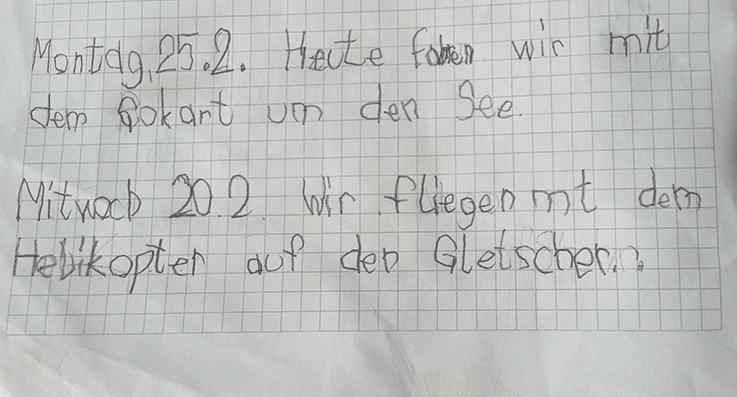 Montag, 25.2. Heute fahren wir mit
dem Gokart um den See.
Mitwoch 20.2. Wir fliegen mt dem
Helikopter auf den Gletscher.